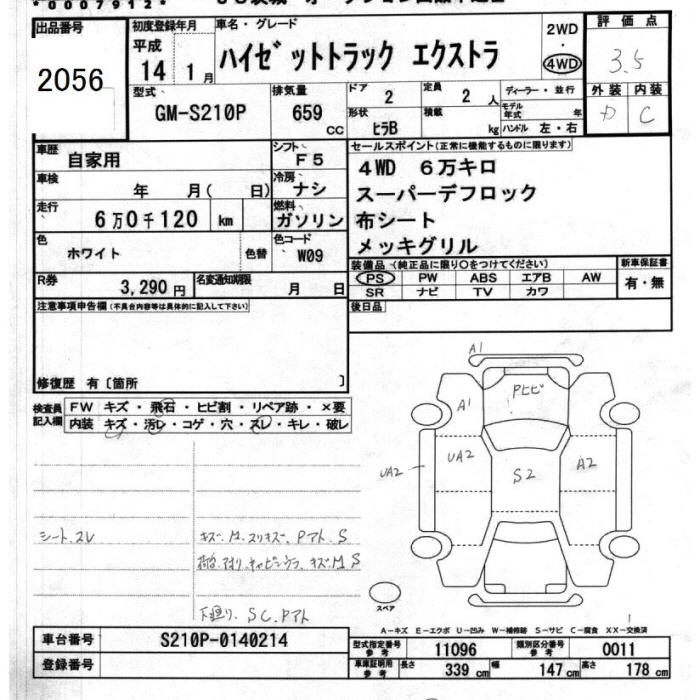 *0007912*
出品番号
2056
初度登録年月
平成
14 1月
車名・グレード
ハイゼットトラック エクストラ
2WD
・
4WD
評価点
3.5
型式
GM-S210P
排気量
659
CC
ドア
2
定員
2 人
ディーラー・並行
モデル年式 年
ハンドル 左・右
形状
ヒラB
積載
kg
外装 内装
D C
車歴
自家用
シフト
F5
車検
年 月( 日)
冷房
ナシ
走行
6万0千120 km
燃料
ガソリン
色
ホワイト
色替
色コード
W09
R券
3,290円
名変通知期限
月 日
セールスポイント(正常に機能するものに限ります)
4WD 6万キロ
スーパーデフロック
布シート
メッキグリル
装備品 (純正品に限り○をつけてください)
新車保証書
PS PW ABS エアB AW
SR ナビ TV カワ
有・無
後日品
注意事項申告欄 (不具合内容等は具体的に記入して下さい)
修復歴 有〔箇所 〕
検査員記入欄
FW キズ・飛石・ヒビ割・リペア跡・×要
内装 キズ・汚レ・コゲ・穴・スレ・キレ・破レ
シート.スレ
キズ.M.スリキズ.Pアト.S
荷台.アオリ.キャビンウラ.キズM S
下廻り.SC.Pアト
A1
Pヒビ
A1
UA2
UA2
S2
A2
スペア
A-キズ E-エクボ U-凹み W-補修跡 S-サビ C-腐食 XX-交換済
車台番号
S210P-0140214
登録番号
型式指定番号 参考
11096
類別区分番号 参考
0011
車庫証明用 参考
長さ 339 cm
幅 147 cm
高さ 178 cm